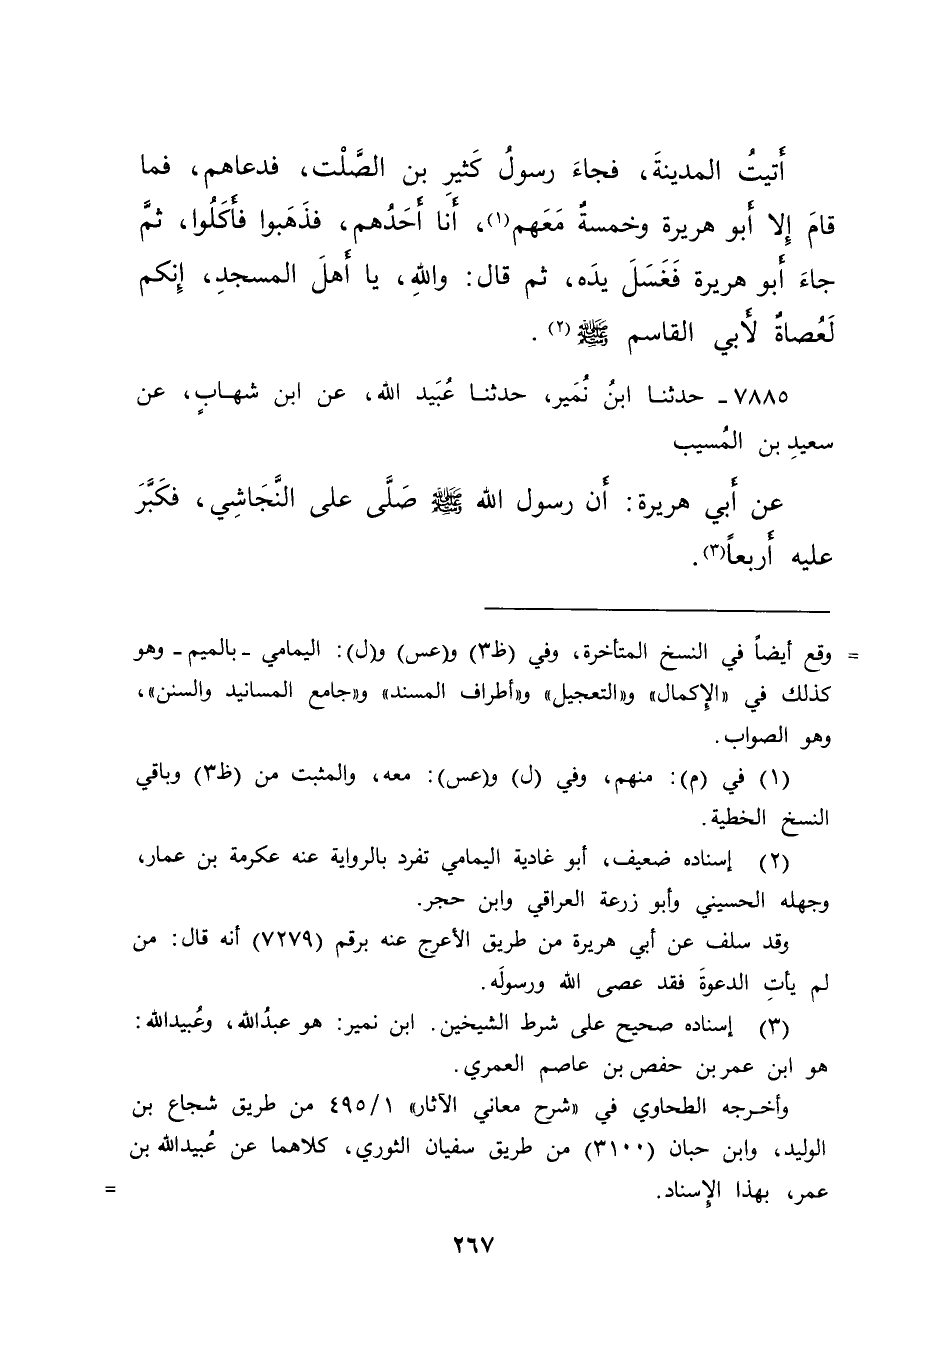 أَتيتُ المدينةَ، فجاءَ رسولُ كَثيرِ بن الصَّلْت، فدعاهم، فما
قامَ إِلا أَبو هريرة وخمسةٌ مَعَهم(١)، أَنا أَحَدُهم، فذَهَبوا فأَكَلُوا، ثمَّ
جاءَ أَبو هريرة فَغَسَلَ يدَه، ثم قال: واللهِ، يا أَهلَ المسجدِ، إِنكم
لَعُصاةٌ لأَبي القاسم ﷺ(٢).
٧٨٨٥ـ حدثنـا ابنُ نُمَير، حدثنـا عُبَيد الله، عن ابن شهـابٍ، عن
سعيدِ بن المُسيب
عن أَبي هريرة: أَن رسول الله ﷺ صَلَّى على النَّجَاشِي، فكَبَّرَ
عليه أَربعاً(٣).
= وقع أيضاً في النسخ المتأخرة، وفي (ظ٣) و(عس) و(ل): اليمامي ـ بالميم ـ وهو
كذلك في «الإكمال» و«التعجيل» و«أطراف المسند» و«جامع المسانيد والسنن»،
وهو الصواب.
(١) في (م): منهم، وفي (ل) و(عس): معه، والمثبت من (ظ٣) وباقي
النسخ الخطية.
(٢) إسناده ضعيف، أبو غادية اليمامي تفرد بالرواية عنه عكرمة بن عمار،
وجهله الحسيني وأبو زرعة العراقي وابن حجر.
وقد سلف عن أبي هريرة من طريق الأعرج عنه برقم (٧٢٧٩) أنه قال: من
لم يأتِ الدعوةَ فقد عصى الله ورسولَه.
(٣) إسناده صحيح على شرط الشيخين. ابن نمير: هو عبدُالله، وعُبيدالله:
هو ابن عمر بن حفص بن عاصم العمري.
وأخـرجه الطحاوي في «شرح معاني الآثار» ٤٩٥/١ من طريق شجاع بن
الوليد، وابن حبان (٣١٠٠) من طريق سفيان الثوري، كلاهما عن عُبيدالله بن
عمر، بهذا الإِسناد. =
٢٦٧